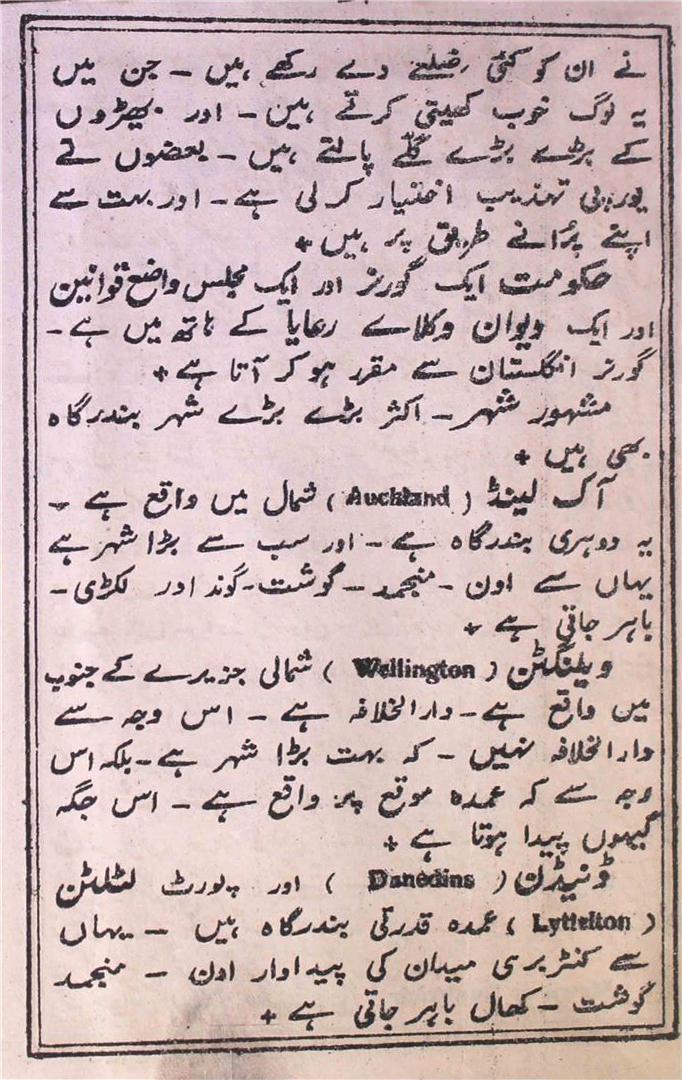 نے ان کو کئی ضلعے دے رکھے ہیں - جن میں
یہ لوگ خوب کھیتی کرتے ہین - اور بھیڑوں
کے بڑے بڑے گلّے پالتے ہیں - بعضوں نے
یورپی تہذیب اختیار کر لی ہے - اور بہت سے
اپنے پُرانے طریق پر ہیں +
حکومت ایک گورنر اور ایک مجلس واضع قوانین
اور ایک دیوان وکلاے رعایا کے ہاتھ میں ہے -
گورنر انگلستان سے مقرر ہو کر آتا ہے +
مشہور شہر - اکثر بڑے بڑے شہر بندرگاہ
بھی ہیں +
آک لینڈ ( Auckland ) شمال میں واقع ہے -
یہ دوہری بندرگاہ ہے - اور سب سے بڑا شہر ہے
یہاں سے اون - منجمد - گوشت - گوند اور لکڑی -
باہر جاتی ہے +
ویلنگٹن ( Wellington ) شمالی جزیرے کے جنوب
میں واقع ہے - دارالخلافہ ہے - اس وجہ سے
دارالخلافہ نہیں - کہ بہت بڑا شہر ہے - بلکہ اس
وجہ سے کہ عمدہ موقع پر واقع ہے - اس جگہ
گیہوں پیدا ہوتا ہے +
ڈنیڈن ( Danedins ) اور پورٹ لٹلٹن
( Lyttelton ) عمدہ قدرتی بندرگاہ ہیں - یہاں
سے کنٹربری میدان کی پیداوار اون - منجمد
گوشت - کھال باہر جاتی ہے +